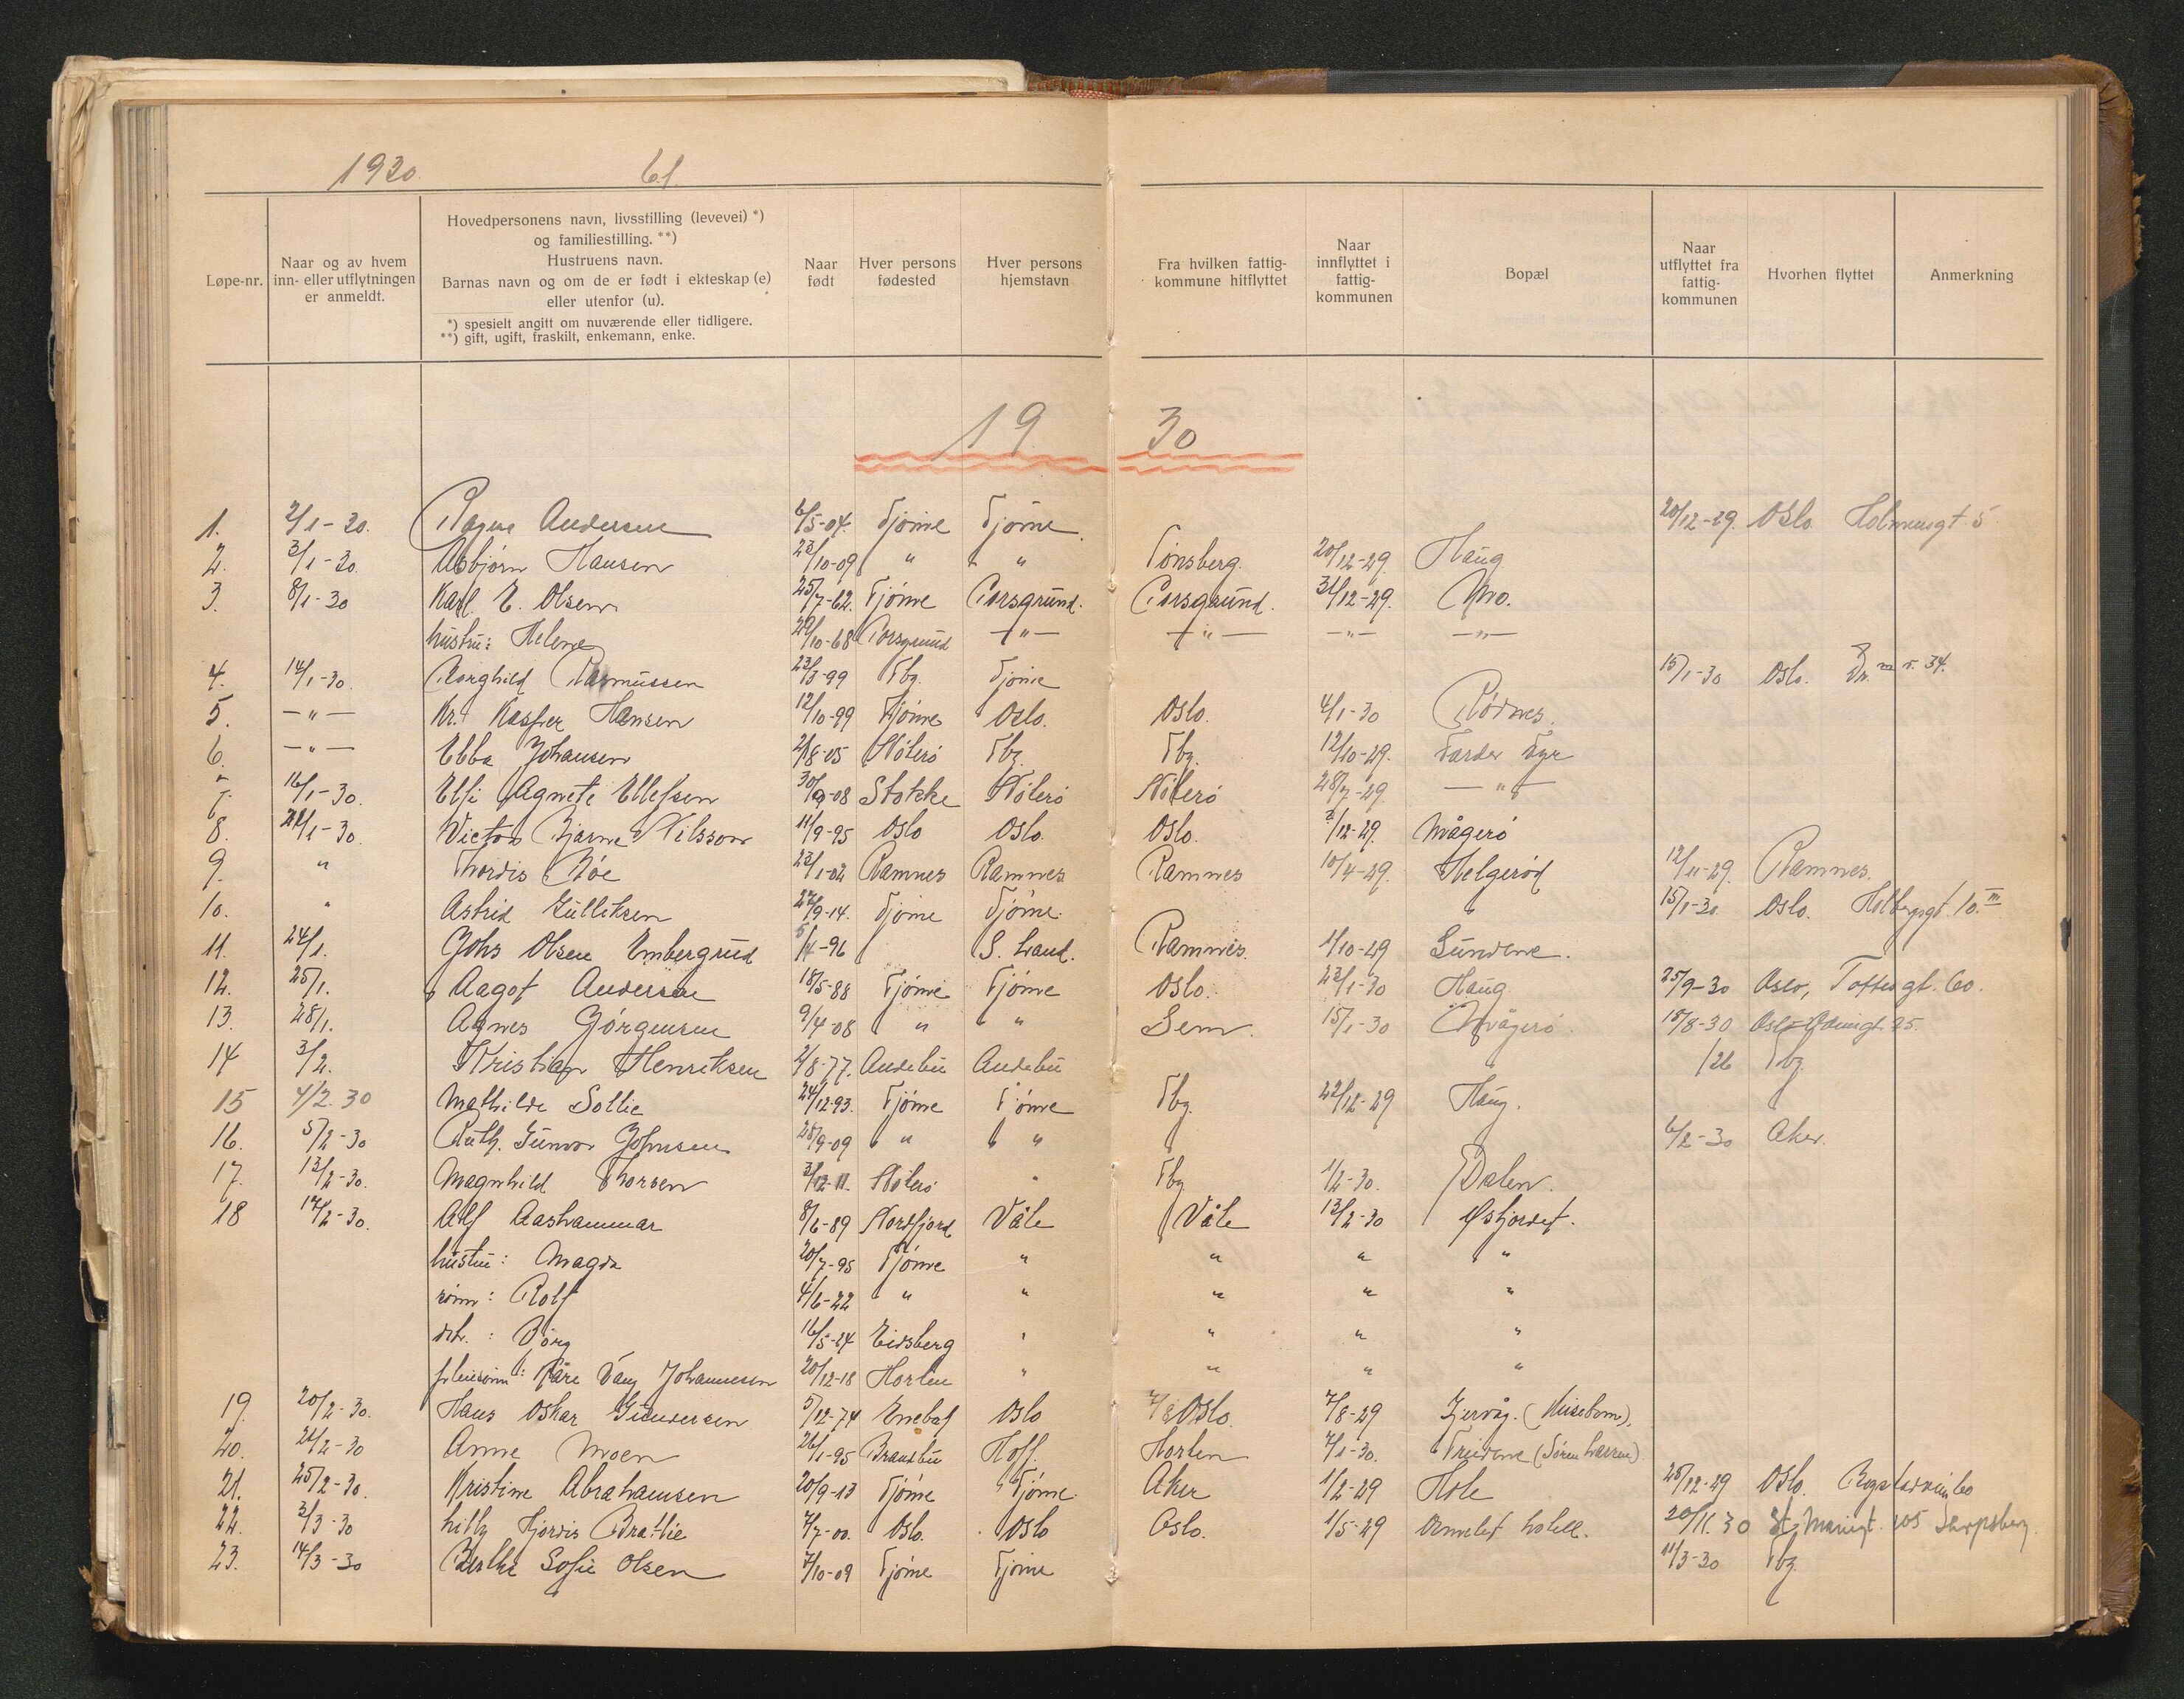 1930. 61.
Løpe-nr.
Naar og av hvem inn- eller utflytningen er anmeldt.
Hovedpersonens navn, livsstilling (levevei) *)
og familiestilling. **)
Hustruens navn.
Barnas navn og om de er født i ekteskap (e)
eller utenfor (u).
*) spesielt angitt om nuværende eller tidligere.
**) gift, ugift, fraskilt, enkemann, enke.
Naar født
Hver persons fødested
Hver persons hjemstavn
Fra hvilken fattig-kommune hitflyttet
Naar innflyttet i fattig-kommunen
Bopæl
Naar utflyttet fra fattig-kommunen
Hvorhen flyttet
Anmerkning
19 30
1. 2/1-30. Ragna Andersen 6/5-04. Tjöme Tjöme. 20/12-29. Oslo Holmensgt. 5
2. 3/1-30. Asbjörn Hansen 23/10-09 " " Tönsberg. 20/12-29. Haug
3. 8/1-30 Karl E. Olsen 25/7-62. Tjöme Porsgrund. Porsgrund. 31/12-29. Mo.
hustru: Helene 29/10-68 Porsgrund —"— —"— —"— —"—
4. 14/1-30. Borghild Rasmussen 23/3-99 Tbg. Tjöme 15/1-30 Oslo. 34.
5. —"— Kr. Kasper Hansen 12/10-99 Tjöme Oslo. Oslo. 4/1-30 Rödnes.
6. —"— Ebba Johansen 2/8-05 Nöterö Tbg. Tbg. 12/10-29. Färder Fyr
7. 16/1-30. Elsi Agnete Ellefsen 30/9-08 Stokke Nöterö Nöterö 28/7-29. —"—
8. 21/1-30. Victor Bjarne Nilsson 11/9-95 Oslo Oslo. Oslo. 2/12-29. Mågerö
9. " Thordis Röe 23/1-02 Ramnes Ramnes Ramnes 10/4-29. Helgerød 12/11-29. Ramnes.
10. " Astrid Gulliksen 22/9-14. Tjöme Tjöme. " 15/1-30. Oslo. Holbergsgt. 10. III
11. 24/1. Johs Olsen Embergrud 5/4-96 S. Land. Ramnes. 1/10-29 Sundene.
12. 25/1. Aagot Andersen 18/5-88 Tjöme Tjöme Oslo. 23/1-30 Haug 25/9-30 Oslo, Toftesgt. 60.
13. 28/1. Agnes Jörgensen 9/4-08 " " Sem. 15/1-30 Mågerö. 15/8-30 Oslo 25.
14 3/2. Kristian Henriksen 2/8-77. Andebu Andebu /26 Tbg.
15 4/2.30 Mathilde Sollie 24/12-93. Tjöme Tjöme Tbg. 22/12-29 Haug.
16. 5/2-30 Ruth. Gunvor Johnsen 28/9-09 " " 6/2-30 Aker.
17. 13/2-30. Magnhild Thorsen 3/12-11. Nöterö " Tbg 1/2-30. Dalen.
18 14/2-30. Alf Aashammar 8/6-89 Nordfjord Våle Våle 13/2-30 Østjordet.
hustru: Magda 20/7-95 Tjöme " " " "
sönn: Rolf 4/6-22 " " " " "
dtr.: Björg 16/5-24 Eidsberg " " " "
pleiesönn: Kåre Vang Johannesen 20/12-18 Horten " " " "
19. 20/2-30. Hans Oskar Gundersen 5/12-74 Enebak Oslo 7/8 Oslo. 7/8-29 Gjervåg. (Husebom).
20. 21/2-30 Anne Moen 26/1-95 Brandbu Hoff. Horten 7/1-30. (Sören Larsen)
21. 25/2-30. Kristine Abrahamsen 20/9-13 Tjöme Tjöme. Aker 1/2-29 Hole 28/12-29 Oslo. Bogstadveien 60
22. 3/3-30 Lilly Hjördis Brathie 7/7-00. Oslo. Oslo Oslo. 1/5-29 Ormelet hotell. 20/11.30 St. Mariegt. 105 Sarpsborg.
23. 14/3-30 Berthe Sofie Olsen 7/10-09 Tjöme Tjöme 11/3-30 Tbg.